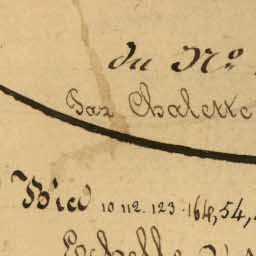 du N°
Par Chalette
Pied 10 112. 123. 164, 54,
Echelle